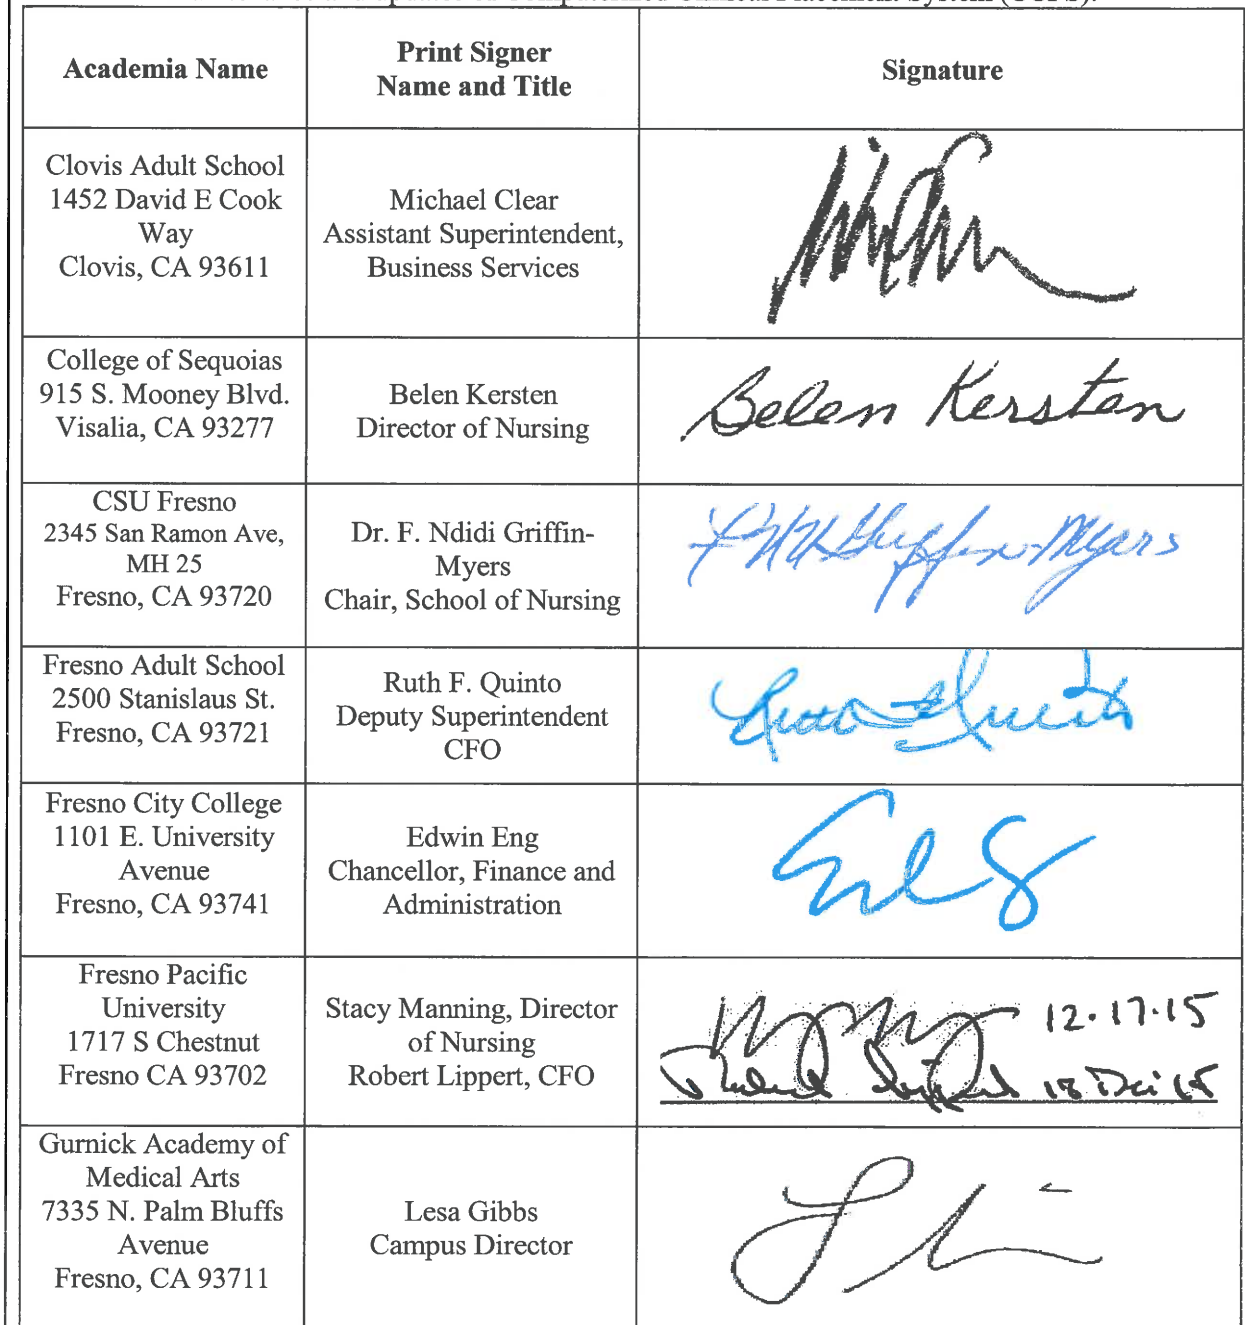 Computerized Clinical Placement System (CCPS).
Academia Name
Print Signer
Name and Title
Signature
Clovis Adult School
1452 David E Cook
Way
Clovis, CA 93611
Michael Clear
Assistant Superintendent,
Business Services
College of Sequoias
915 S. Mooney Blvd.
Visalia, CA 93277
Belen Kersten
Director of Nursing
Belen Kersten
CSU Fresno
2345 San Ramon Ave,
MH 25
Fresno, CA 93720
Dr. F. Ndidi Griffin-
Myers
Chair, School of Nursing
Griffin-Myers
Fresno Adult School
2500 Stanislaus St.
Fresno, CA 93721
Ruth F. Quinto
Deputy Superintendent
CFO
Ruth F Quinto
Fresno City College
1101 E. University
Avenue
Fresno, CA 93741
Edwin Eng
Chancellor, Finance and
Administration
Fresno Pacific
University
1717 S Chestnut
Fresno CA 93702
Stacy Manning, Director
of Nursing
Robert Lippert, CFO
12.17.15
Robert Lippert 18 Dec 15
Gurnick Academy of
Medical Arts
7335 N. Palm Bluffs
Avenue
Fresno, CA 93711
Lesa Gibbs
Campus Director